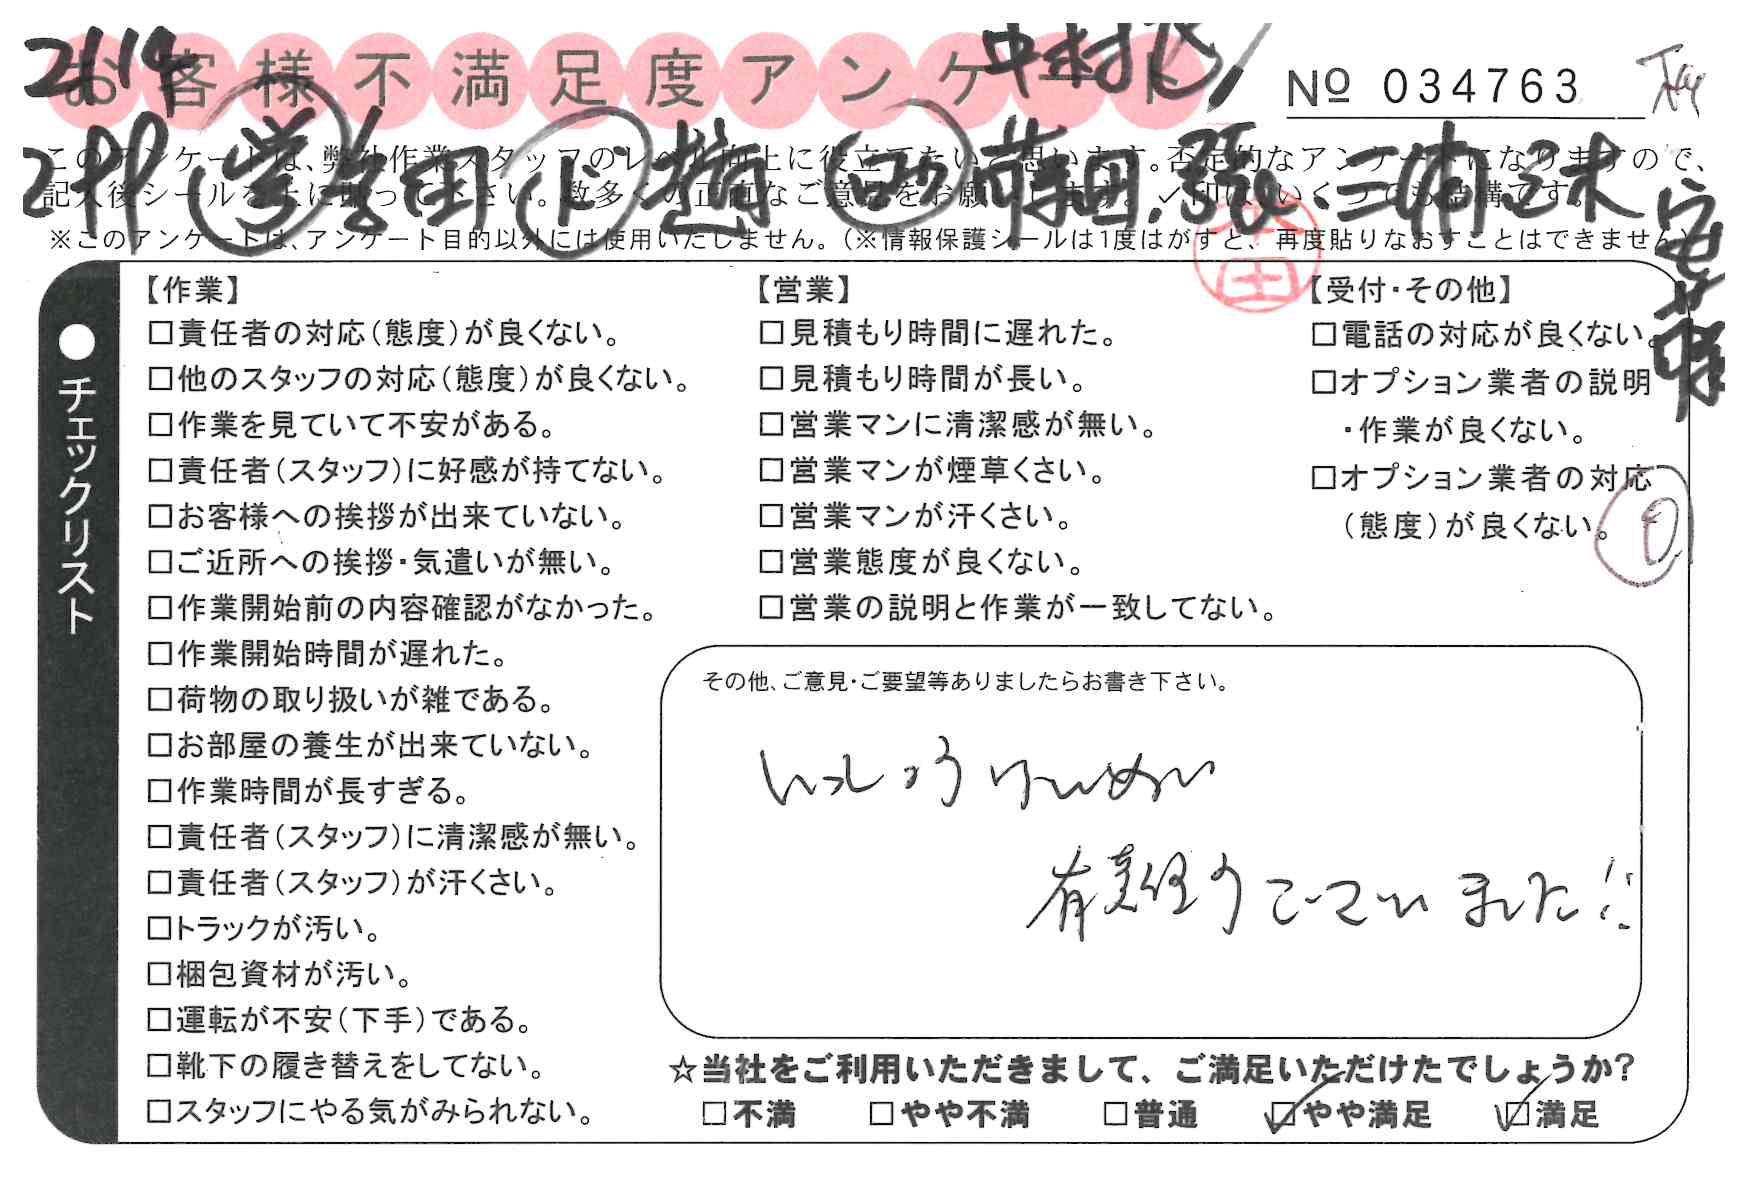 2119 お客様不満足度アンケート 中村
№ 034763
このアンケートは、弊社作業スタッフのレベル向上に役立てたいと思います。否定的なアンケートになりますので、
記入後シールを上に貼って下さい。数多くの正直なご意見をお願いします。✓印は、いくつでも結構です。
※このアンケートは、アンケート目的以外には使用いたしません。(※情報保護シールは1度はがすと、再度貼りなおすことはできません)
●チェックリスト
【作業】
□責任者の対応(態度)が良くない。
□他のスタッフの対応(態度)が良くない。
□作業を見ていて不安がある。
□責任者(スタッフ)に好感が持てない。
□お客様への挨拶が出来ていない。
□ご近所への挨拶・気遣いが無い。
□作業開始前の内容確認がなかった。
□作業開始時間が遅れた。
□荷物の取り扱いが雑である。
□お部屋の養生が出来ていない。
□作業時間が長すぎる。
□責任者(スタッフ)に清潔感が無い。
□責任者(スタッフ)が汗くさい。
□トラックが汚い。
□梱包資材が汚い。
□運転が不安(下手)である。
□靴下の履き替えをしてない。
□スタッフにやる気がみられない。
【営業】
□見積もり時間に遅れた。
□見積もり時間が長い。
□営業マンに清潔感が無い。
□営業マンが煙草くさい。
□営業マンが汗くさい。
□営業態度が良くない。
□営業の説明と作業が一致してない。
【受付・その他】
□電話の対応が良くない。
□オプション業者の説明
・作業が良くない。
□オプション業者の対応
(態度)が良くない。
その他、ご意見・ご要望等ありましたらお書き下さい。
いっしょうけんめい
有難うございました!!
☆当社をご利用いただきまして、ご満足いただけたでしょうか?
□不満 □やや不満 □普通 ☑やや満足 ☑満足